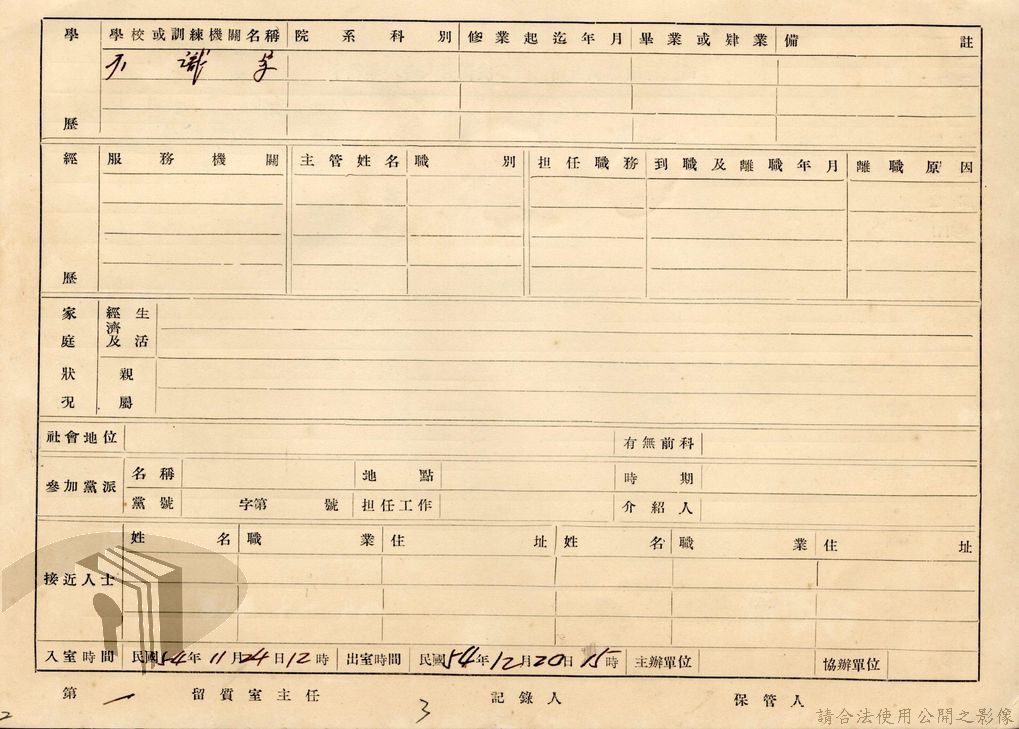 學歷 學校或訓練機關名稱 院系科別 修業起迄年月 畢業或肄業 備註
不識字
經歷 服務機關 主管姓名 職別 担任職務 到職及離職年月 離職原因
家庭狀況 經濟及生活
親屬
社會地位 有無前科
參加黨派 名稱 地點 時期
黨號 字第 號 担任工作 介紹人
接近人士 姓名 職業 住址 姓名 職業 住址
入室時間 民國54年11月24日12時 出室時間 民國54年12月20日15時 主辦單位 協辦單位
第一留質室主任 記錄人 保管人
3
2
請合法使用公開之影像